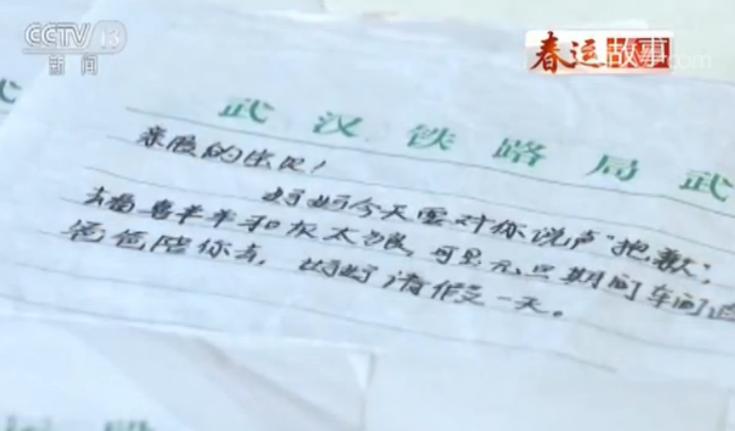 CCTV 13
新闻
春运故事
武汉铁路局武
亲爱的
妈妈今天要对你说声"抱歉",
去看喜羊羊和灰太狼,可是元旦期间车间
爸爸陪你去,妈妈请假一天。